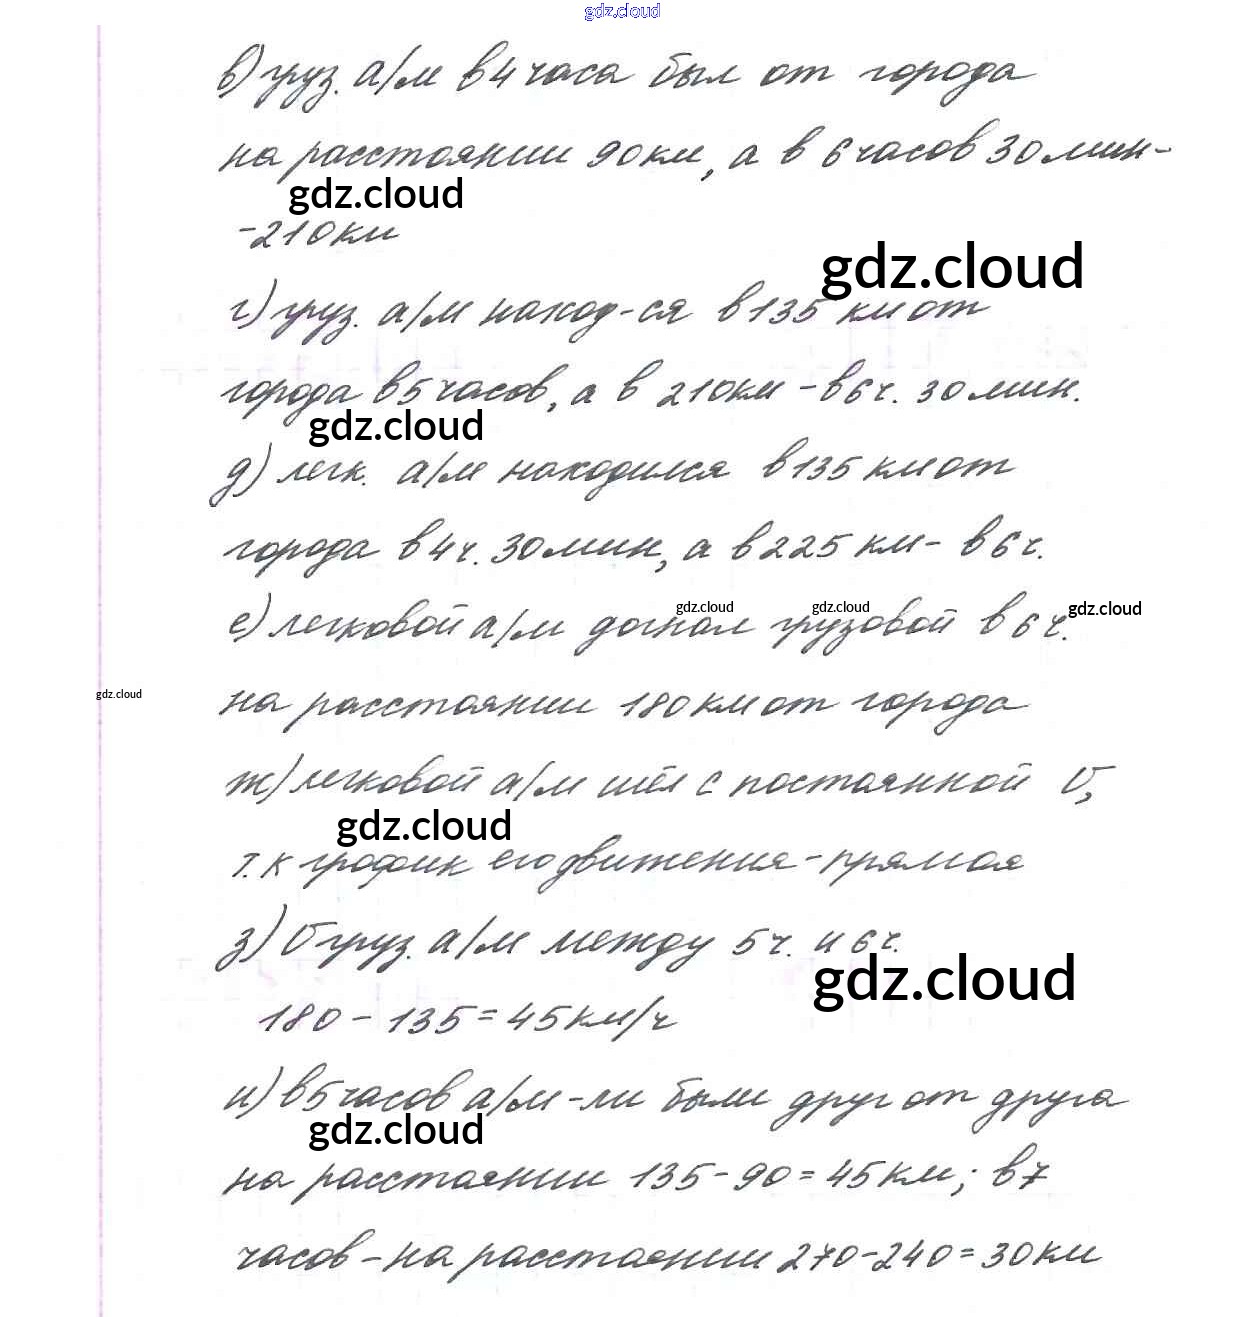 gdz.cloud
в) груз. а/м в 4 часа был от города
на расстоянии 90 км, а в 6 часов 30 мин-
gdz.cloud
-210 км
gdz.cloud
г) груз. а/м наход-ся в 135 км от
города в 5 часов, а в 210 км - в 6 ч. 30 мин.
gdz.cloud
д) легк. а/м находился в 135 км от
города в 4 ч. 30 мин, а в 225 км - в 6 ч.
gdz.cloud gdz.cloud gdz.cloud
е) легковой а/м догнал грузовой в 6 ч.
gdz.cloud
на расстоянии 180 км от города
ж) легковой а/м шёл с постоянной v,
gdz.cloud
т.к график его движения - прямая
з) v груз. а/м между 5 ч. и 6 ч.
gdz.cloud
180 - 135 = 45 км/ч
и) в 5 часов а/м-ли были друг от друга
gdz.cloud
на расстоянии 135 - 90 = 45 км; в 7
часов - на расстоянии 270 - 240 = 30 км